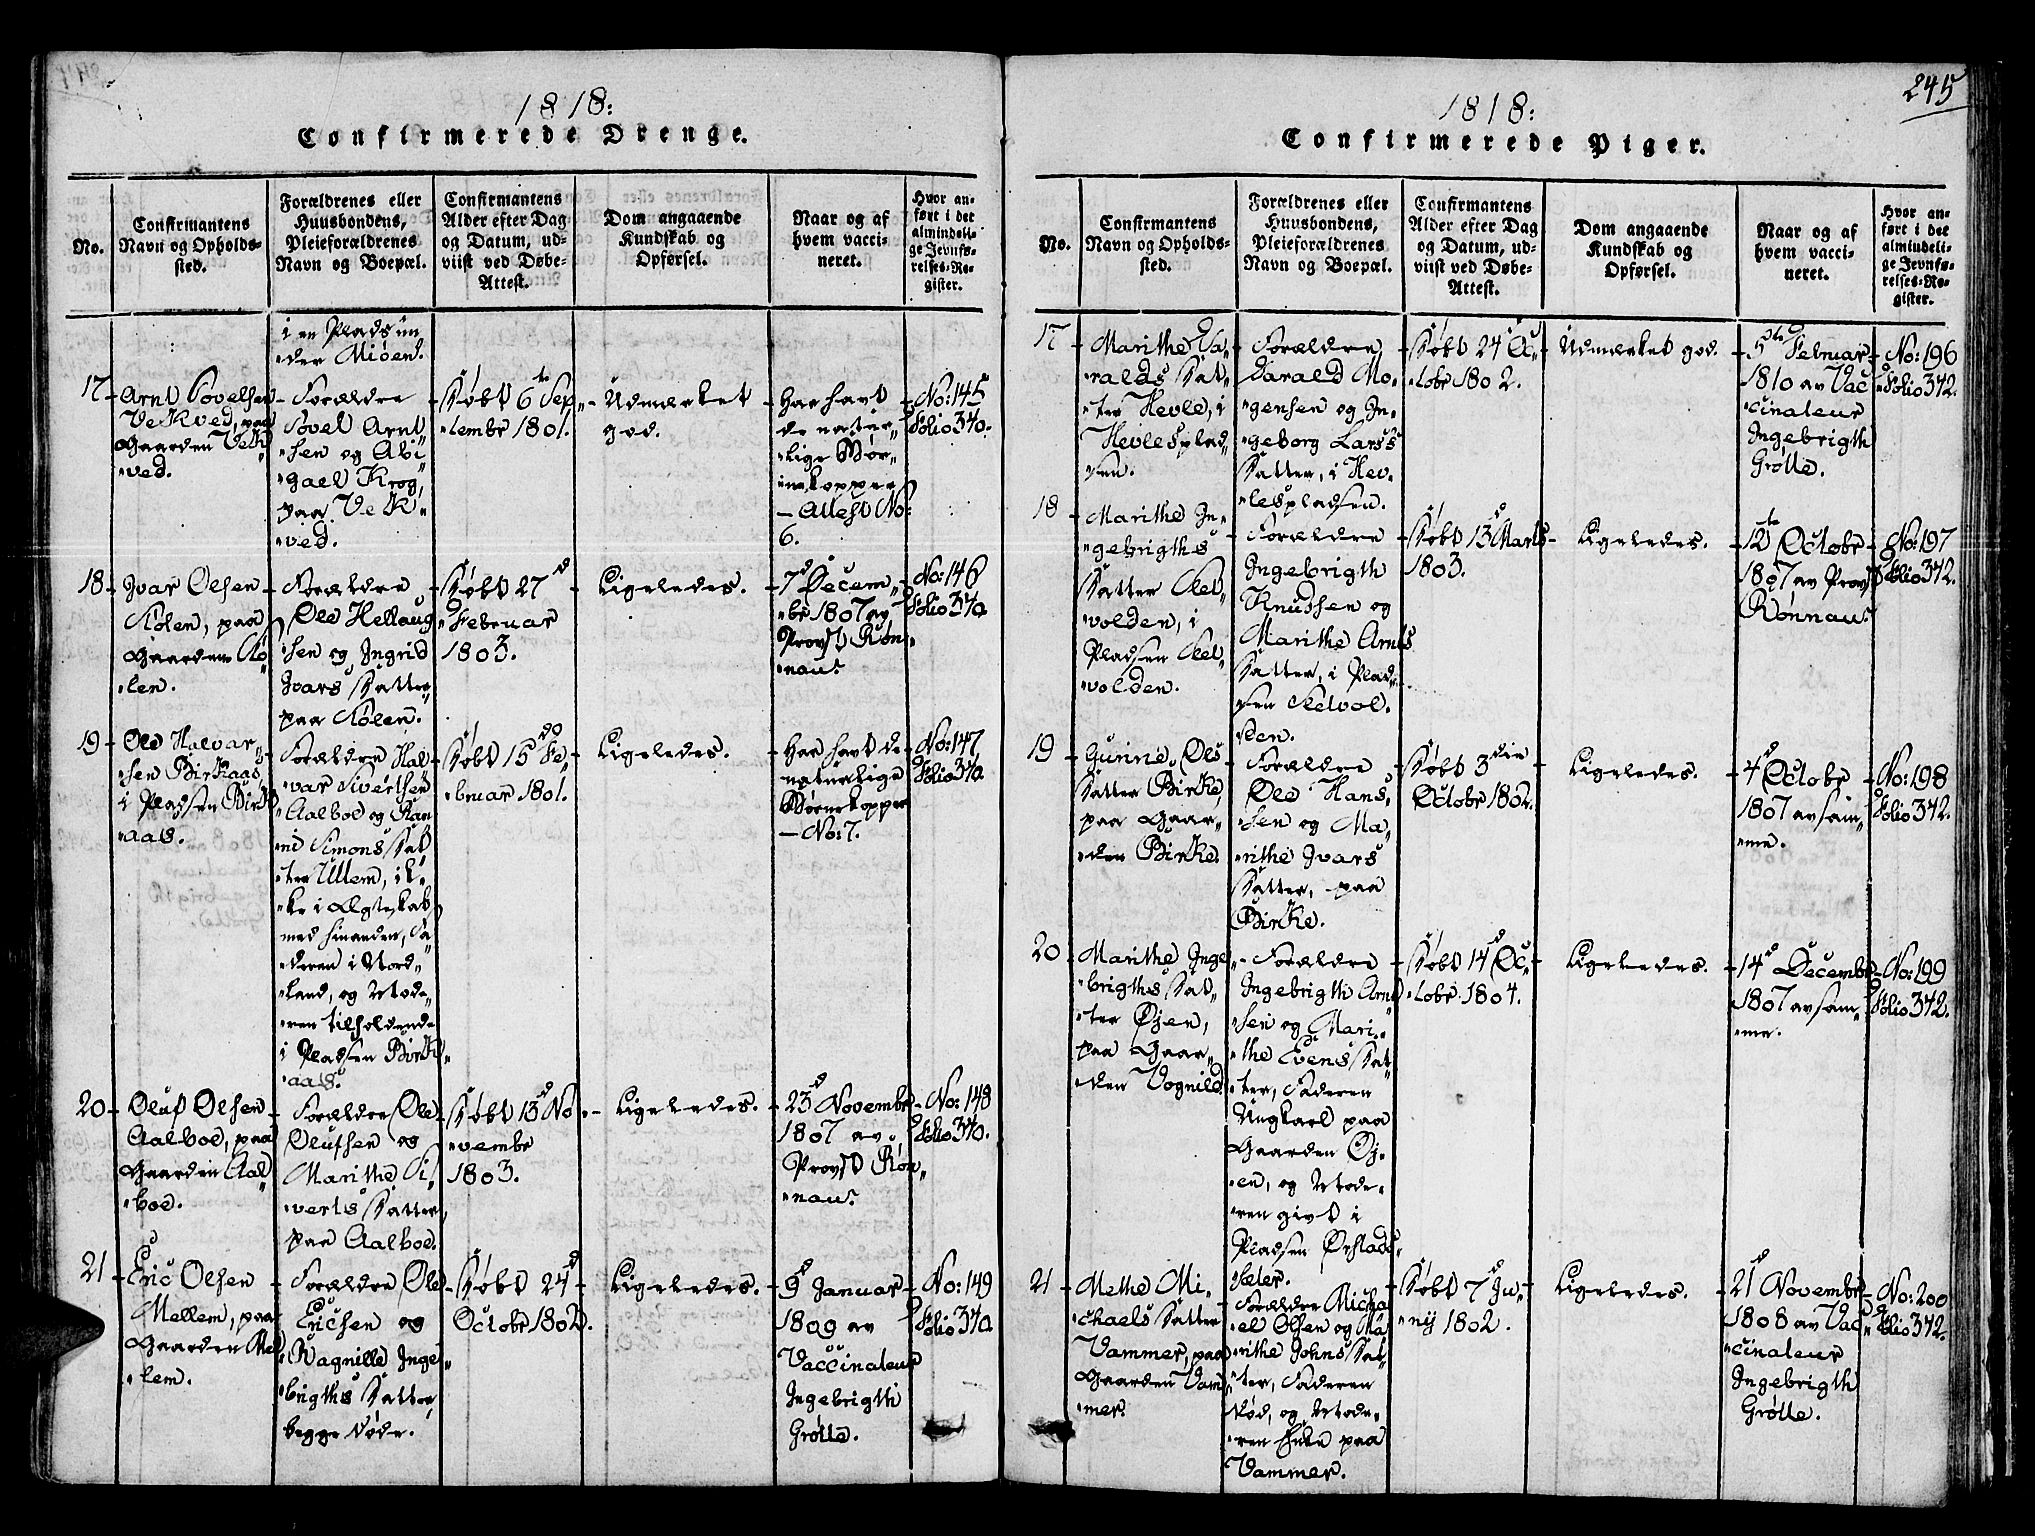 1818:
Confirmerede Drenge.
No.
Confirmantens
Navn og Opholds-
sted.
Forældrenes eller
Huusbondens,
Pleieforældrenes
Navn og Boepæl.
Confirmantens
Alder efter Dag
og Datum, ud-
viist ved Døbe-
Attest.
Dom angaaende
Kundskab og
Opførsel.
Naar og af
hvem vacci-
neret.
Hvor an-
ført i det
almindeli-
ge Jevnfø-
relses-Re-
gister.
i en Plads un
der Mioen.
17
Arnt Povelsen
Vekved, paa
Gaarden Vek
ved.
Forældre
Povel Arnt
sen og Abi
gael Krog,
paa Vek
ved.
Døbt 6te Sep
tembr 1801.
Udmærket
god.
Har havt
de natur
lige Bør
nekopper
Attest No:
6.
No: 145
Folio 370.
18
Ivar Olsen
Kolen, paa
Gaarden Ko
len.
Forældre
Ole Hellaug
sen og Ingrid
Ivars Datter
paa Kolen.
Døbt 27d
Februar
1803.
Ligeledes.
7d Decem
br 1807 av
Provst Røn
nau.
No: 146
Folio 370
19
Ole Halvar
sen Birkaas,
i Pladsen Birk
aas.
Forældre Hal
var Sivertsen
Aalboe og Ran
ni Simons Dat
ter Ullem, ik
ke i Ægteskab
med hinanden, Fa
deren i Nord
land, og Mode
ren tilholdende
i Pladsen Birk
aas.
Døbt 15do Fe
bruar 1801.
Ligeledes.
Har havt de
naturlige
Børnekopper
No: 7.
No: 147
Folio 370
20
Oluf Olsen
Aalboe, paa
Gaarden Aal
boe.
Forældre Ole
Olufsen og
Marithe Si
verts Datter,
paa Aalboe.
Døbt 13d No
vembr
1803.
Ligeledes.
23d Novembr
1807 av
Provst Røn
nau.
No: 148
Folio 370.
21
Eric Olsen
Mellem, paa
Gaarden Mel
lem.
Forældre Ole
Ericsen og
Ragnille Inge
brigths Datter
begge døde.
Døbt 24d
Octobr 1802.
Ligeledes.
9d Januar
1809 av
Vaccinateur
Ingebrigth
Grøtte.
No: 149
Folio 370
245
1818:
Confirmerede Piger.
No.
Confirmantens
Navn og Opholds-
sted.
Forældrenes eller
Huusbondens,
Pleieforældrenes
Navn og Boepæl.
Confirmantens
Alder efter Dag
og Datum, ud-
viist ved Døbe-
Attest.
Dom angaaende
Kundskab og
Opførsel.
Naar og af
hvem vacci-
neret.
Hvor an-
ført i det
almindeli-
ge Jevnfø-
relses-Re-
gister.
17
Marithe Da
ralds Dat
ter Hevle, i
Hevlesplad
sen.
Forældre
Darald Mo
gensen og In
geborg Lars
Datter, i Hev
lespladsen.
Døbt 24d Oc
tobr 1802.
Udmærket god.
5te Februar
1810 av Vac
cinateur
Ingebrigth
Grøtte.
No: 196
Folio 372.
18
Marithe In
gebrigths
Datter Kel
volden, i
Pladsen Kel
volden.
Forældre
Ingebrigth
Knudsen og
Marithe Arnts
Datter, i Plad
sen Kelvol
den.
Døbt 13d Marts
1803.
Ligeledes.
12te Octobr
1807 av Provst
Rønnau.
No: 197
Folio 372.
19
Gurine Ols
Datter Birke,
paa Gaar
den Birke.
Forældre
Ole Hans
sen og Ma
rithe Ivars
Datter, paa
Birke.
Døbt 3die
Octobr 1802.
Ligeledes.
4d Octobr
1807 av sam
me.
No: 198
Folio 372.
20
Marithe Inge
brigths Dat
ter Øjen,
paa Gaar
den Vognild.
Forældre
Ingebrigth Arnt
sen og Mari
the Evens Dat
ter, Faderen
Ungkarl paa
Gaarden Øj
en, og Mode
ren givt i
Pladsen Ørstads
sæter.
Døbt 14d Oc
tobr 1804.
Ligeledes.
14d Decembr
1807 av sam
me.
No: 199
Folio 372.
21
Methe Mi
chaels Datter
Vammer, paa
Gaarden Vam
mer.
Forældre Micha
el Olsen og Ma
rithe Johns Dat
ter, Faderen
død, og Mode
ren Enke paa
Vammer.
Døbt 7d Ju
nij 1802.
Ligeledes.
21d Novembr
1808 av Vac
cinateur
Ingebrigth
Grøtte.
No: 200
Folio 372.